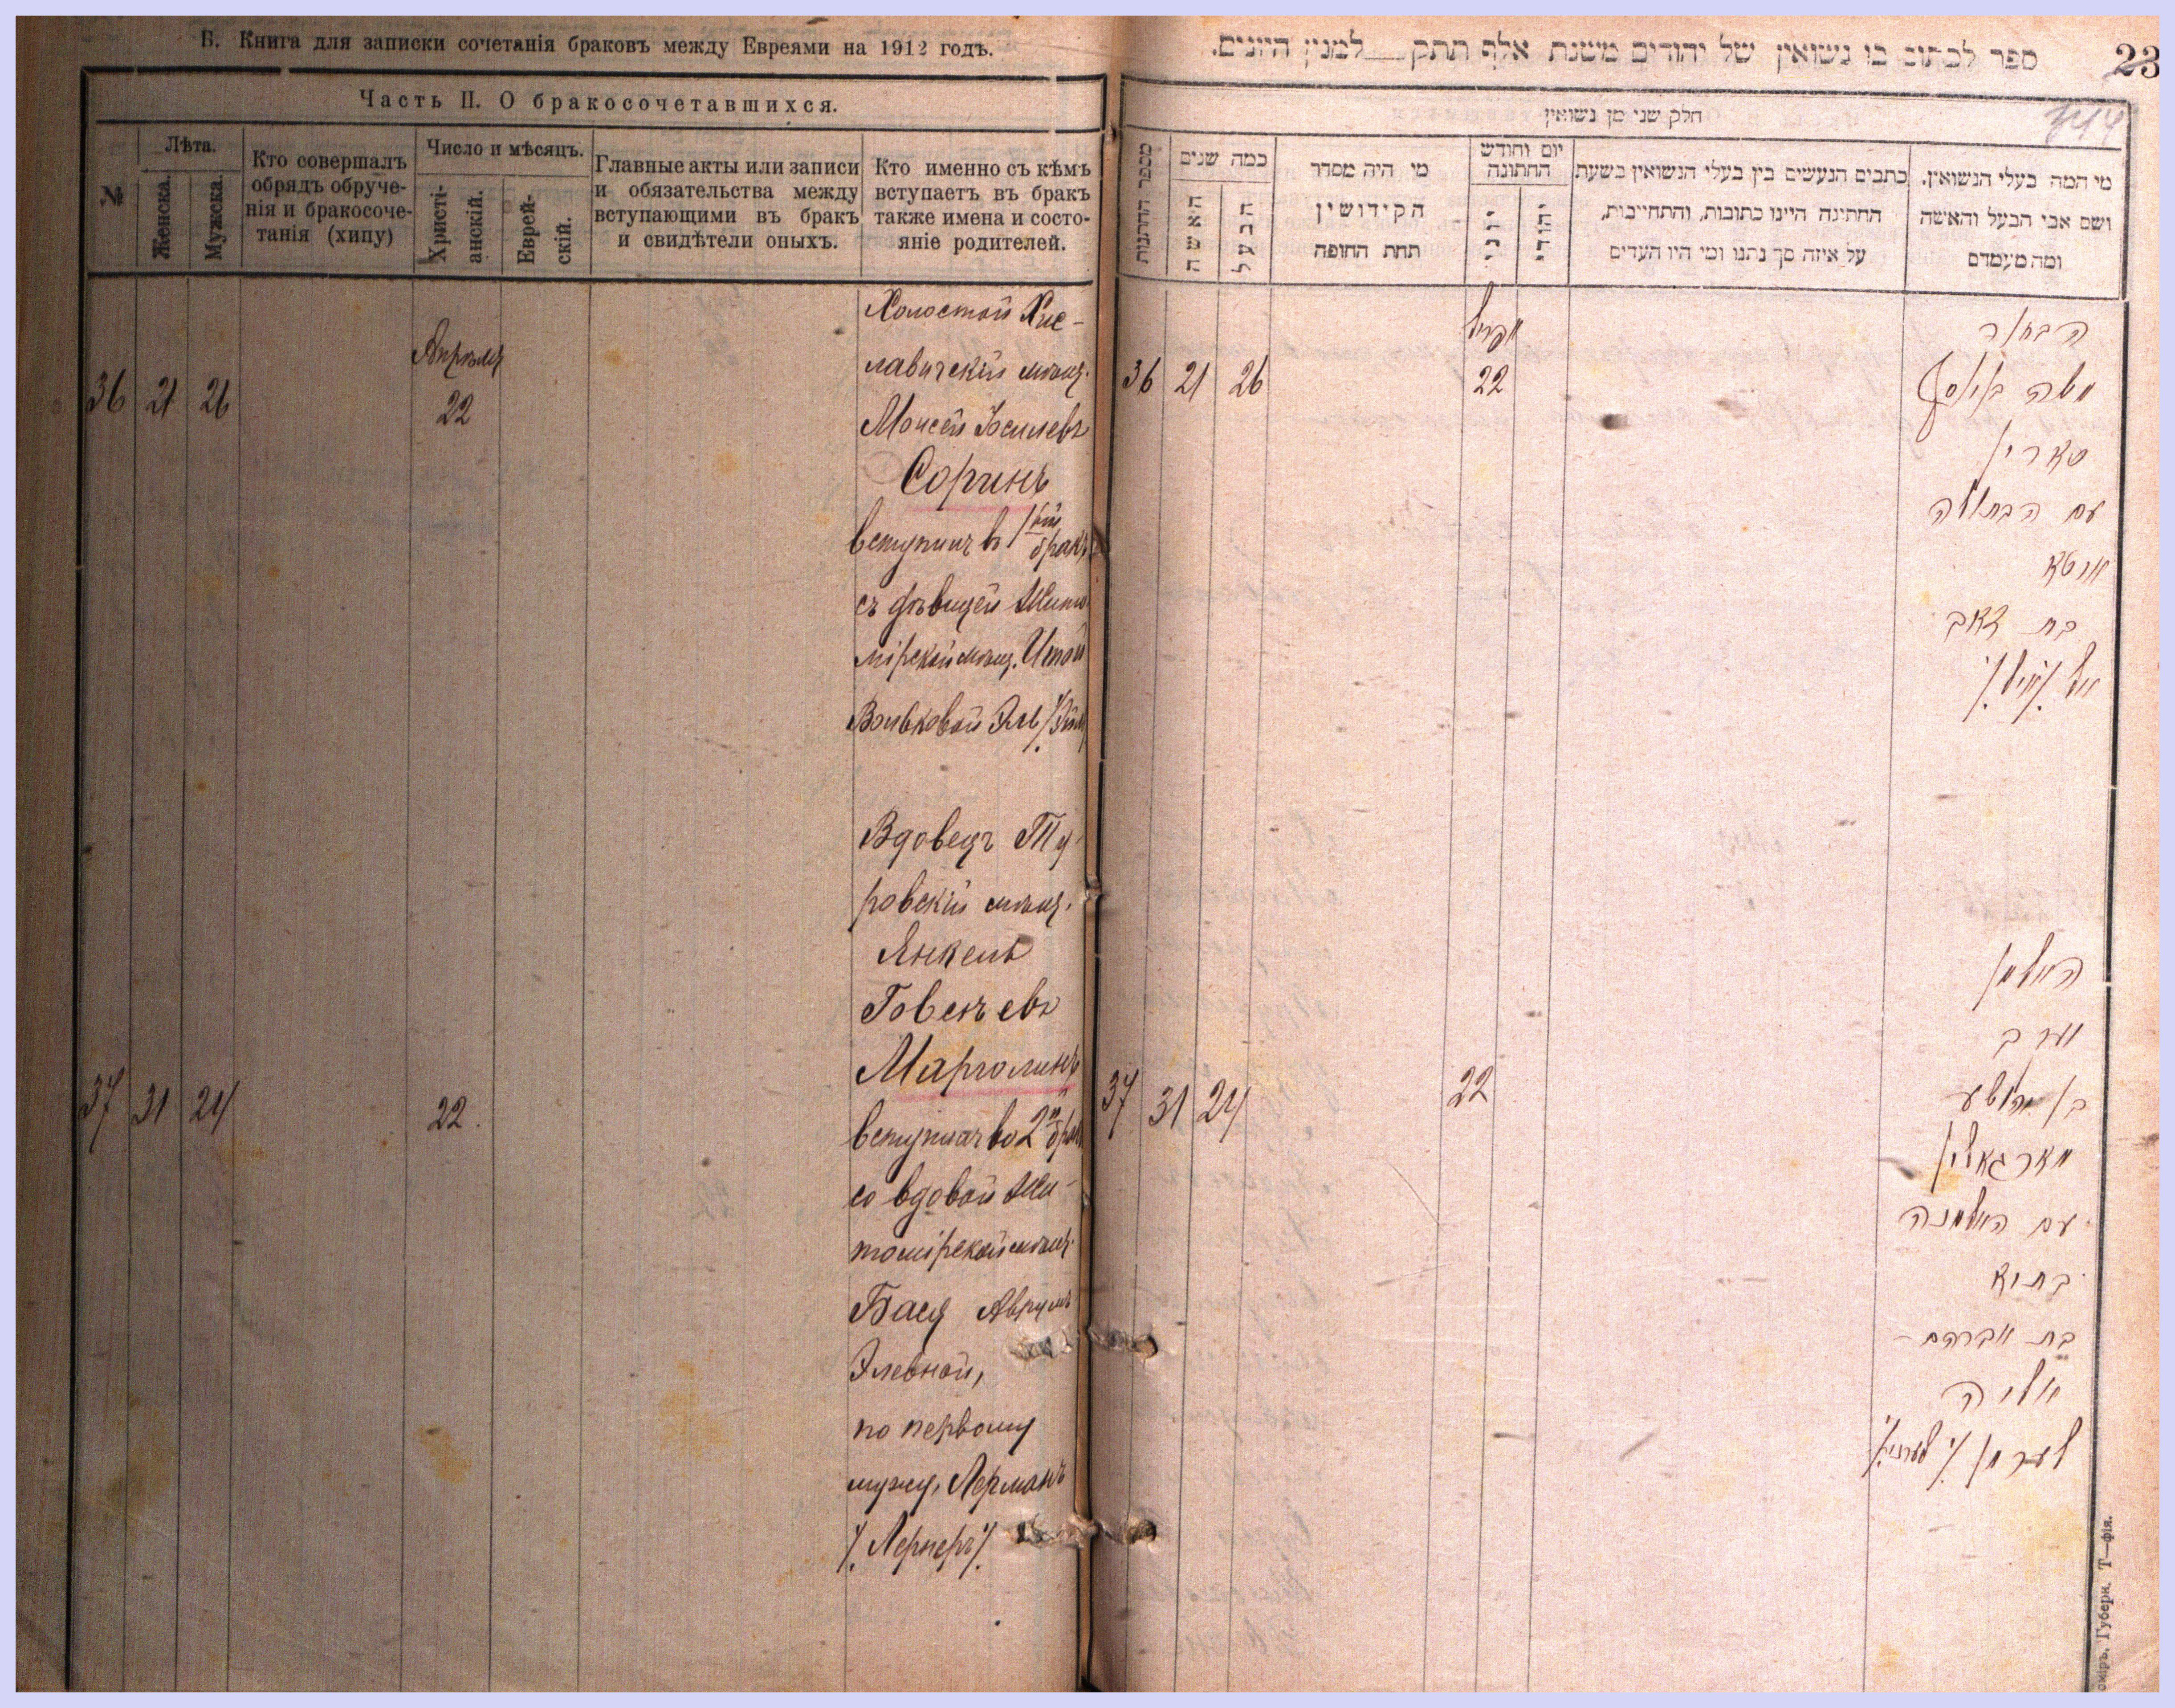 Б. Книга для записки сочетанія браковъ между Евреями на 1912 годъ.
Часть II. О бракосочетавшихся.
№
Лѣта.
Женска.
Мужска.
Кто совершалъ
обрядъ обруче-
нія и бракосоче-
танія (хипу)
Число и мѣсяцъ.
Христі-
анскій.
Еврей-
скій.
Главные акты или записи
и обязательства между
вступающими въ бракъ
и свидѣтели оныхъ.
Кто именно съ кѣмъ
вступаетъ въ бракъ
также имена и состо-
яніе родителей.
Апрѣля
36 21 26 22
Холостой Хис-
лавичскій мѣщ.
Моисей Іосилевъ
Соринъ
вступилъ въ 1ый бракъ
съ дѣвицей Жито
мірской мѣщ. Итой
Вольковой
Вдовецъ Ту-
ровскій мѣщ.
Янкель
Говсѣевъ
Марголинъ
37 31 24 22.
вступилъ во 2й бракъ
со вдовой Жи-
томірской мѣщ.
Бася Аврумъ
Элевной,
по первому
мужу, Лерманъ
/. Лернеръ /.
ספר לכתוב בו נשואין של יהודים משנת אלף תתק למנין היונים.
23
344
חלק שני מן נשואין
מספר החתונות
כמה שנים
האשה
הבעל
מי היה מסדר
הקידושין
תחת החופה
יום וחודש
החתונה
יוני
יהודי
כתבים הנעשים בין בעלי הנשואין בשעת
החתינה היינו כתובות, והתחייבות,
על איזה סך נתנו ומי היו העדים
מי המה בעלי הנשואין.
ושם אבי הבעל והאשה
ומה מעמדם
אפריל
36 21 26 22
הבחור
משה
סארין
עם הבתולה
איטא
בת זאב
האלמן
יעקב
37 31 24 22
בן יהושע
מארגאלין
עם האלמנה
בתיא
בת אברהם -
אליה
לערמן
Губерн. Т—фія.